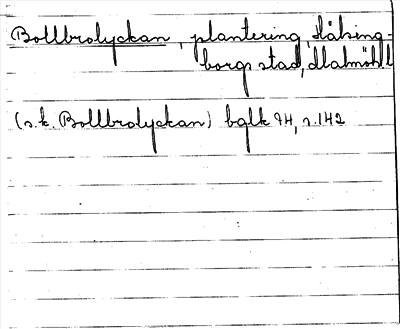 Bollbrolyckan, plantering, Hälsing-
borgs stad, Malmöhl
(s.k. Bollbrolyckan) bglk 94, s. 142